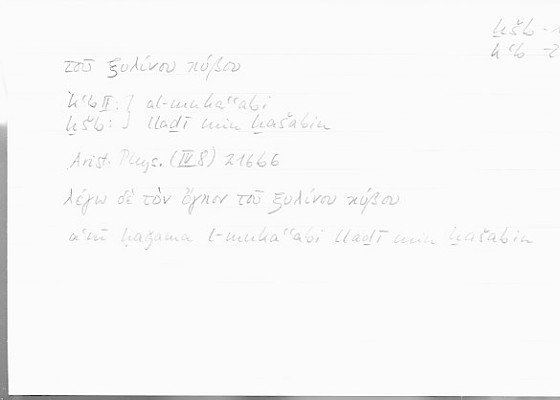 ḫšb -1
kʿb -2
τοῦ ξυλίνου κύβου
kʿb II: } al-mukaʿʿabi
ḫšb: } llaḏī min ḫašabin
Arist. Phys. (IV 8) 216b6
λέγω δὲ τὸν ὄγκον τοῦ ξυλίνου κύβου
aʿnī ḥaǧama l-mukaʿʿabi llaḏī min ḫašabin